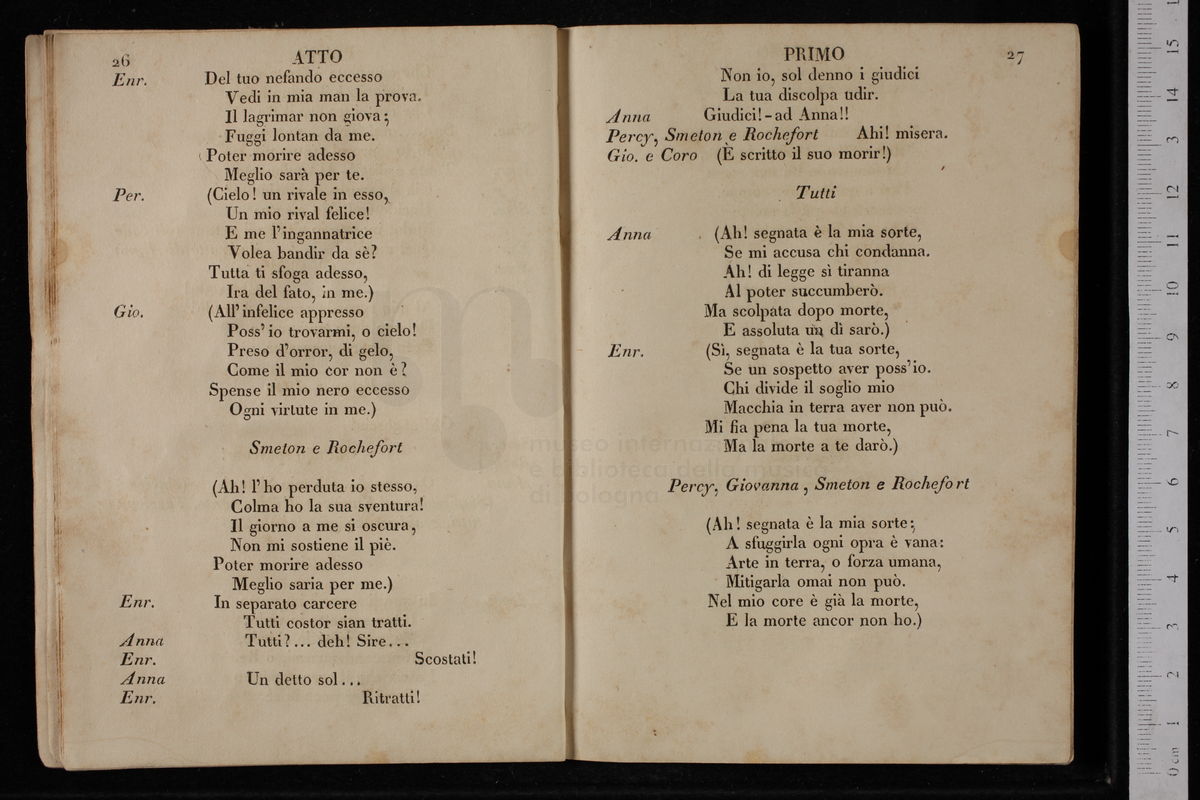 26 ATTO
Enr. Del tuo nefando eccesso
Vedi in mia man la prova.
Il lagrimar non giova;
Fuggi lontan da me.
Poter morire adesso
Meglio sarà per te.
Per. (Cielo! un rivale in esso,
Un mio rival felice!
E me l'ingannatrice
Volea bandir da sè?
Tutta ti sfoga adesso,
Ira del fato, in me.)
Gio. (All'infelice appresso
Poss'io trovarmi, o cielo!
Preso d'orror, di gelo,
Come il mio cor non è?
Spense il mio nero eccesso
Ogni virtute in me.)
Smeton e Rochefort
(Ah! l'ho perduta io stesso,
Colma ho la sua sventura!
Il giorno a me si oscura,
Non mi sostiene il piè.
Poter morire adesso
Meglio saria per me.)
Enr. In separato carcere
Tutti costor sian tratti.
Anna Tutti?... deh! Sire...
Enr. Scostati!
Anna Un detto sol...
Enr. Ritratti!
PRIMO 27
Non io, sol denno i giudici
La tua discolpa udir.
Anna Giudici! - ad Anna!!
Percy, Smeton e Rochefort Ahi! misera.
Gio. e Coro (È scritto il suo morir!)
Tutti
Anna (Ah! segnata è la mia sorte,
Se mi accusa chi condanna.
Ah! di legge sì tiranna
Al poter succumberò.
Ma scolpata dopo morte,
E assoluta un dì sarò.)
Enr. (Sì, segnata è la tua sorte,
Se un sospetto aver poss'io.
Chi divide il soglio mio
Macchia in terra aver non può.
Mi fia pena la tua morte,
Ma la morte a te darò.)
Percy, Giovanna, Smeton e Rochefort
(Ah! segnata è la mia sorte;
A sfuggirla ogni opra è vana:
Arte in terra, o forza umana,
Mitigarla omai non può.
Nel mio core è già la morte,
E la morte ancor non ho.)
museo internazionale
e biblioteca della musica
di bologna
0 cm 1 2 3 4 5 6 7 8 9 10 11 12 13 14 15